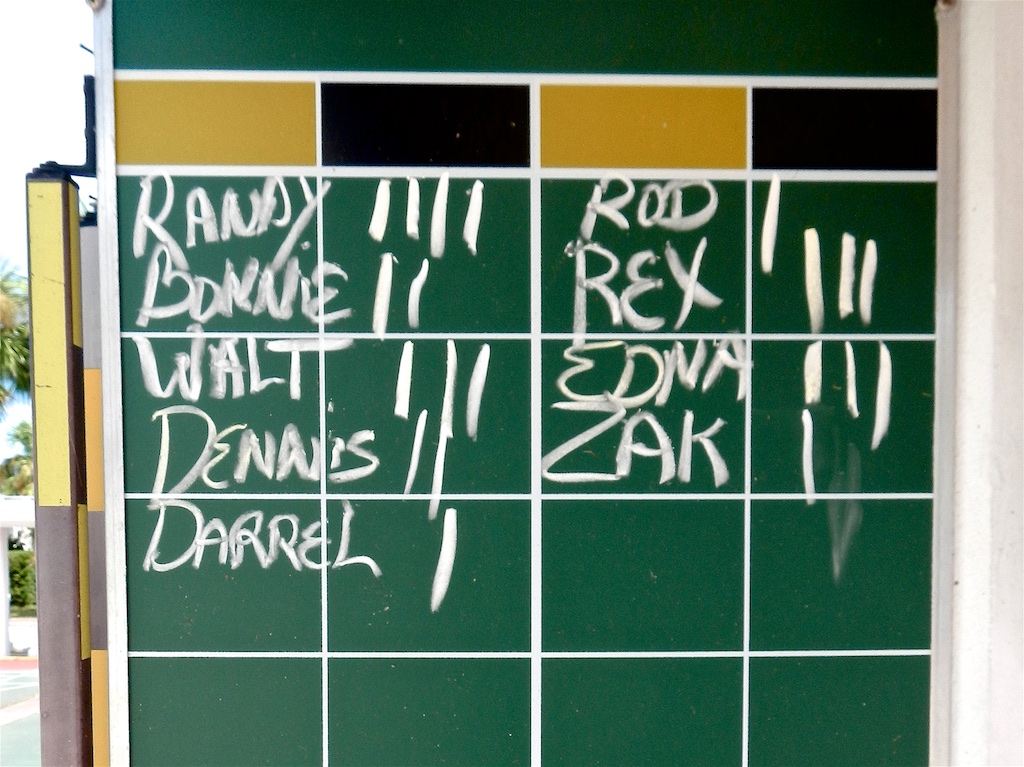 RANDY ||||
BONNIE ||
WALT |||
DENNIS ||
DARREL |
ROD |
REX |||
EDNA |||
ZAK |